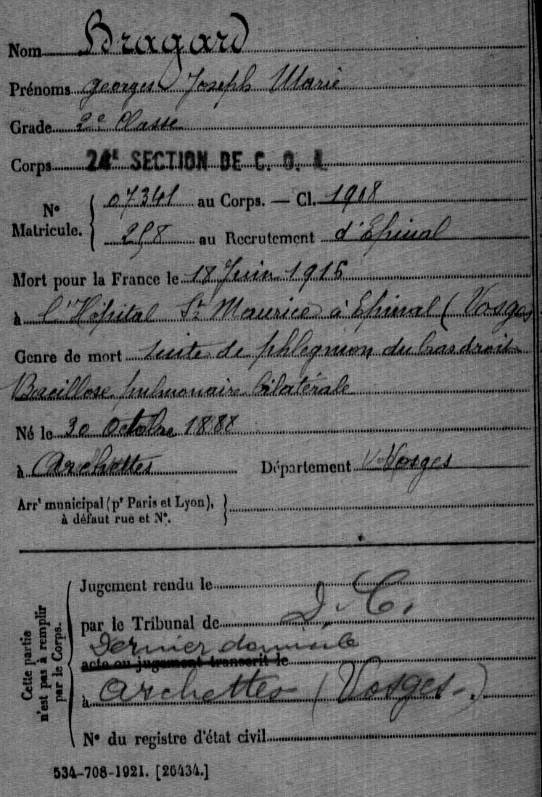 Nom Bragard
Prénoms Georges Joseph Marie
Grade 2e Classe
Corps 24e SECTION DE C. O. A.
N° Matricule. { 07341 au Corps. — Cl. 1908
258 au Recrutement d'Epinal
Mort pour la France le 18 Juin 1915
à l'Hôpital St Maurice à Epinal (Vosges)
Genre de mort suite de phlegmon du bras droit
Bacillose pulmonaire bilatérale
Né le 30 Octobre 1888
à Archettes Département Vosges
Arrt municipal (pr Paris et Lyon), }
à défaut rue et N°.
Cette partie n'est pas à remplir par le Corps.
Jugement rendu le
par le Tribunal de D. C.
Dernier domicile
acte ou jugement transcrit le
à Archettes (Vosges)
N° du registre d'état civil
534-708-1921. [26434.]